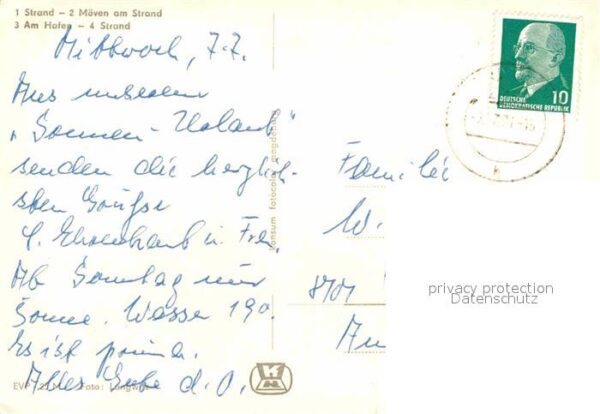 1 Strand – 2 Möven am Strand
3 Am Hafen – 4 Strand
Mittwoch, 7.7.
Aus unserem
"Sonnen-Urlaub"
senden die herzlich-
sten Grüße
Ab Sonntag nur
Sonne. Wasser 19°.
Es ist prima.
Alles Gute d. O.
EVP Foto:
Konsum fotocolor magdeburg
10
DEUTSCHE
DEMOKRATISCHE REPUBLIK
Familie
W.
8701
privacy protection
Datenschutz